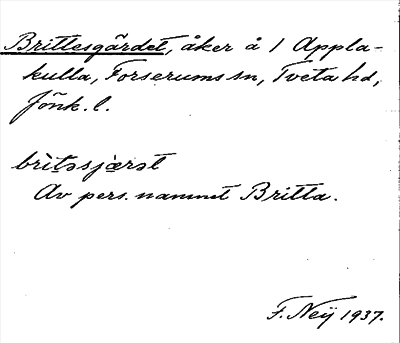 Brittesgärdet, åker å 1 Appla-
kulla, Forserums sn, Tveta hd,
Jönk. l.
brìtəsjæ̀rət
Av pers. namnet Britta.
F. Neÿ 1937.